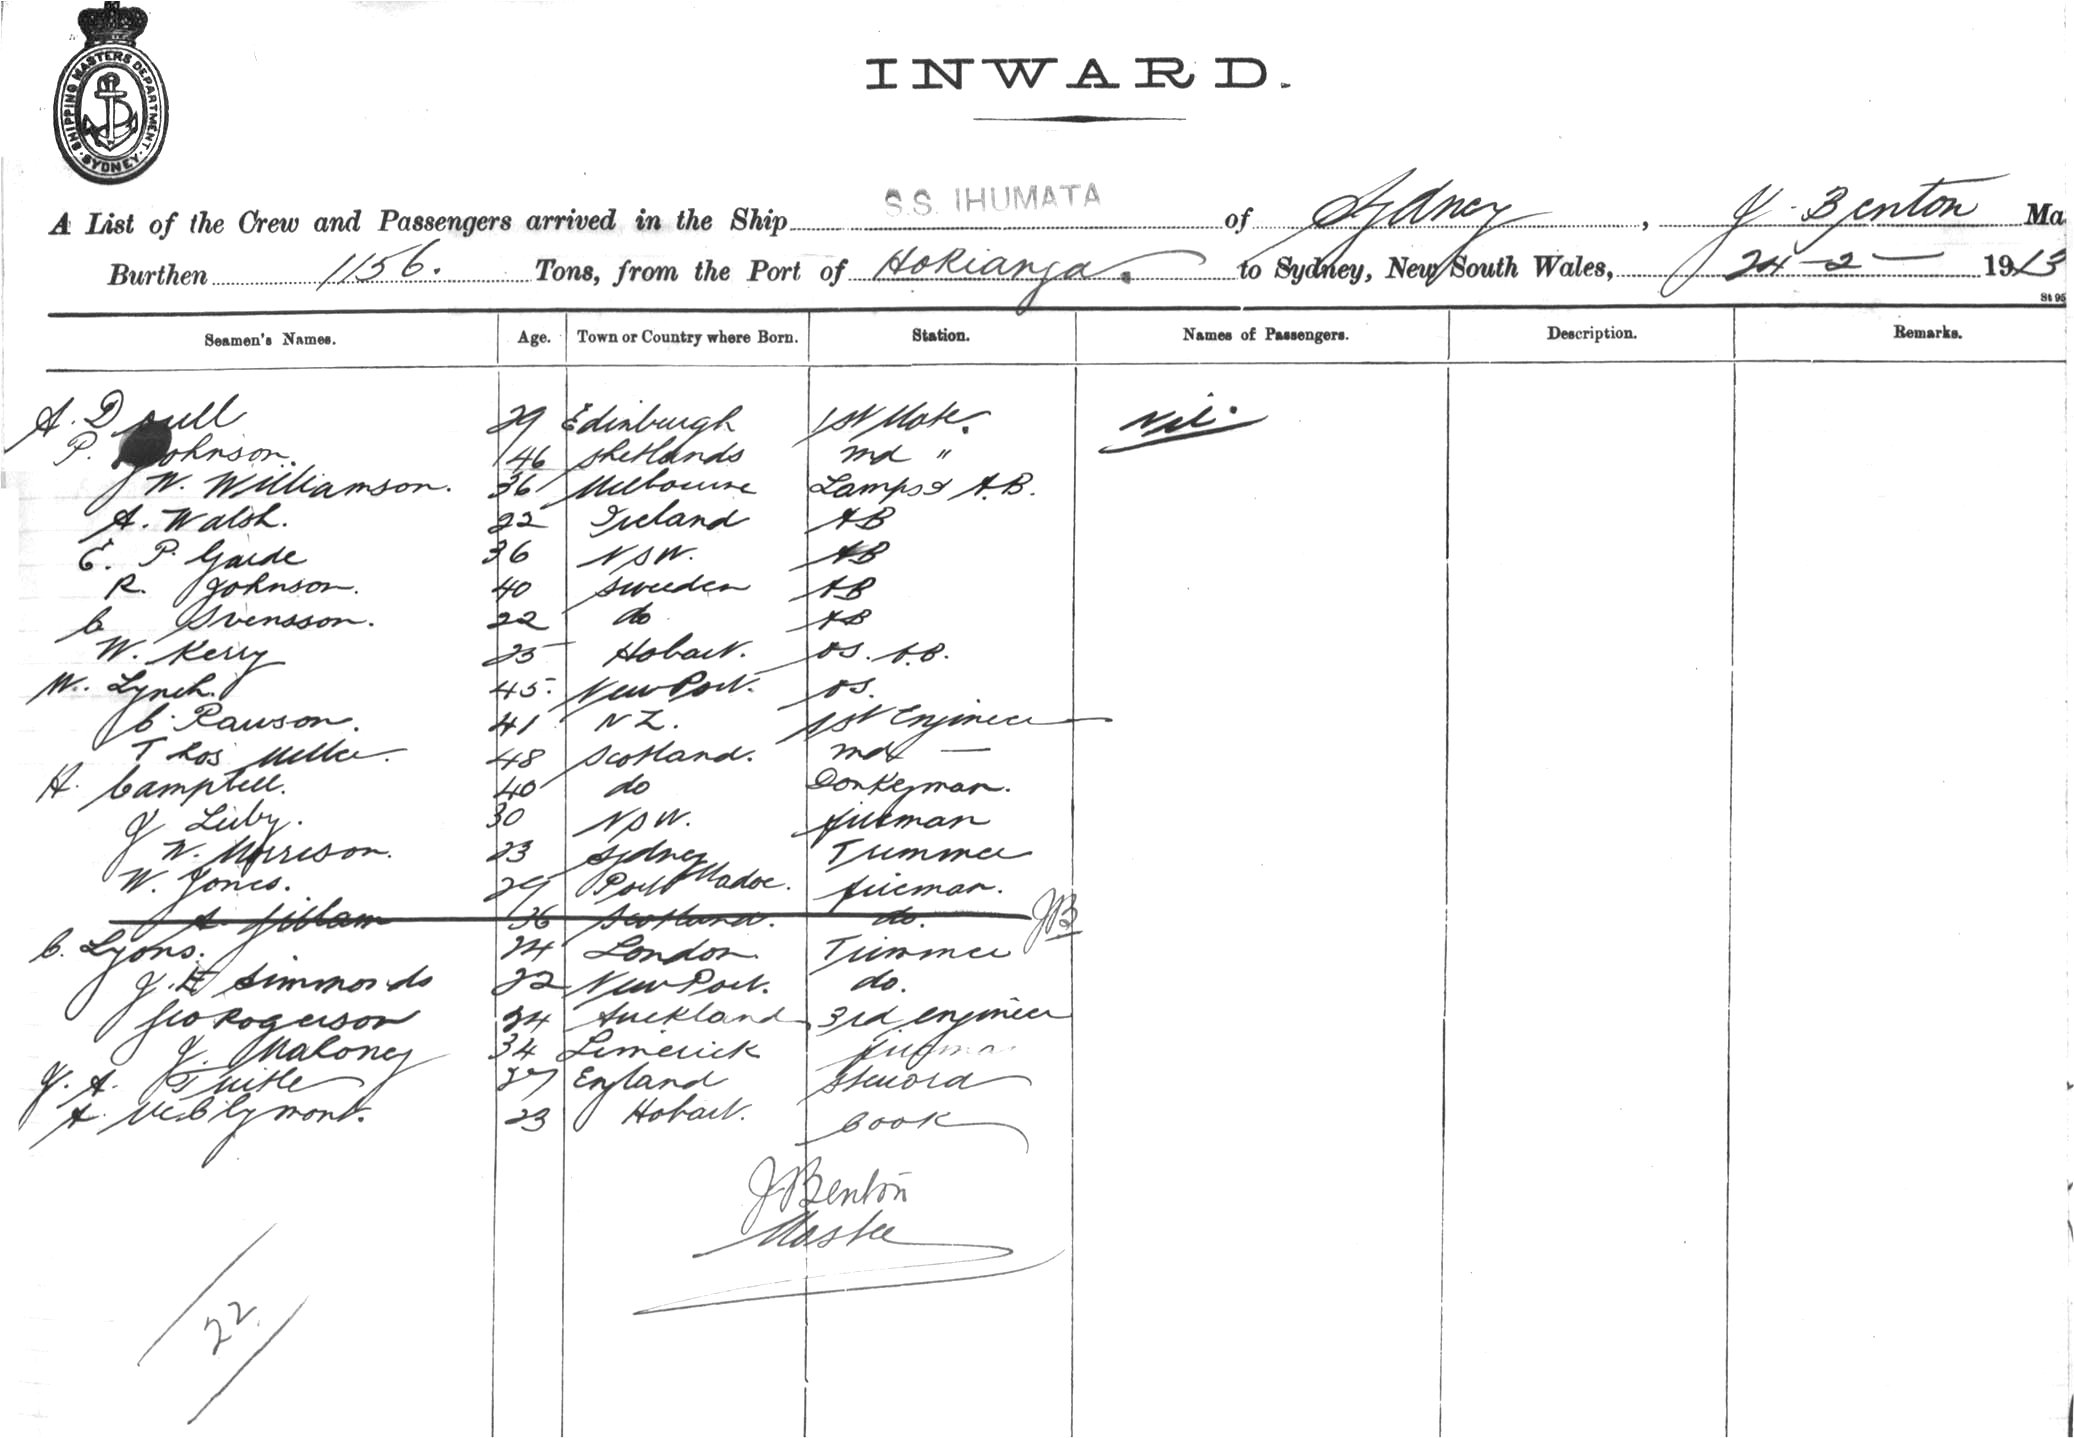 SHIPPING MASTERS DEPARTMENT. SYDNEY.
INWARD.
A List of the Crew and Passengers arrived in the Ship S.S. IHUMATA of Sydney, J. Benton Ma
Burthen 1156. Tons, from the Port of Hokianga. to Sydney, New South Wales, 24-2- 1913
St 95
Seamen's Names. Age. Town or Country where Born. Station. Names of Passengers. Description. Remarks.
A. Doull 29 Edinburgh 1st Mate. Nil.
P. Johnson. 46 Shetlands 2nd "
W. Williamson. 36 Melbourne Lamps & A.B.
A. Walsh. 22 Ireland AB
E. P. Garde 36 NSW. AB
R. Johnson. 40 Sweeden AB
C Svensson. 22 do AB
W. Kerry 25 Hobart. OS. A.B.
W. Lynch. 45. New Port. OS.
C. Rawson. 41 NZ. 1st Engineer
Thos Miller. 48 Scotland. 2nd —
H. Campbell. 40 do Donkeyman.
J 30 NSW. fireman
W. Morrison. 23 Sydney Trimmer
W. Jones. 29 Port Madoc. fireman.
A. 36 Scotland. do. JB
C. Lyons. 24 London Trimmer
J. H Simmonds 22 New Port. do.
Geo Rogerson 24 Auckland 3rd engineer
J. Maloney 34 Limerick fireman
J. A. Tuitle 27 England Steward
A. McClymont. 23 Hobart. Cook
J Benton
Master
22.